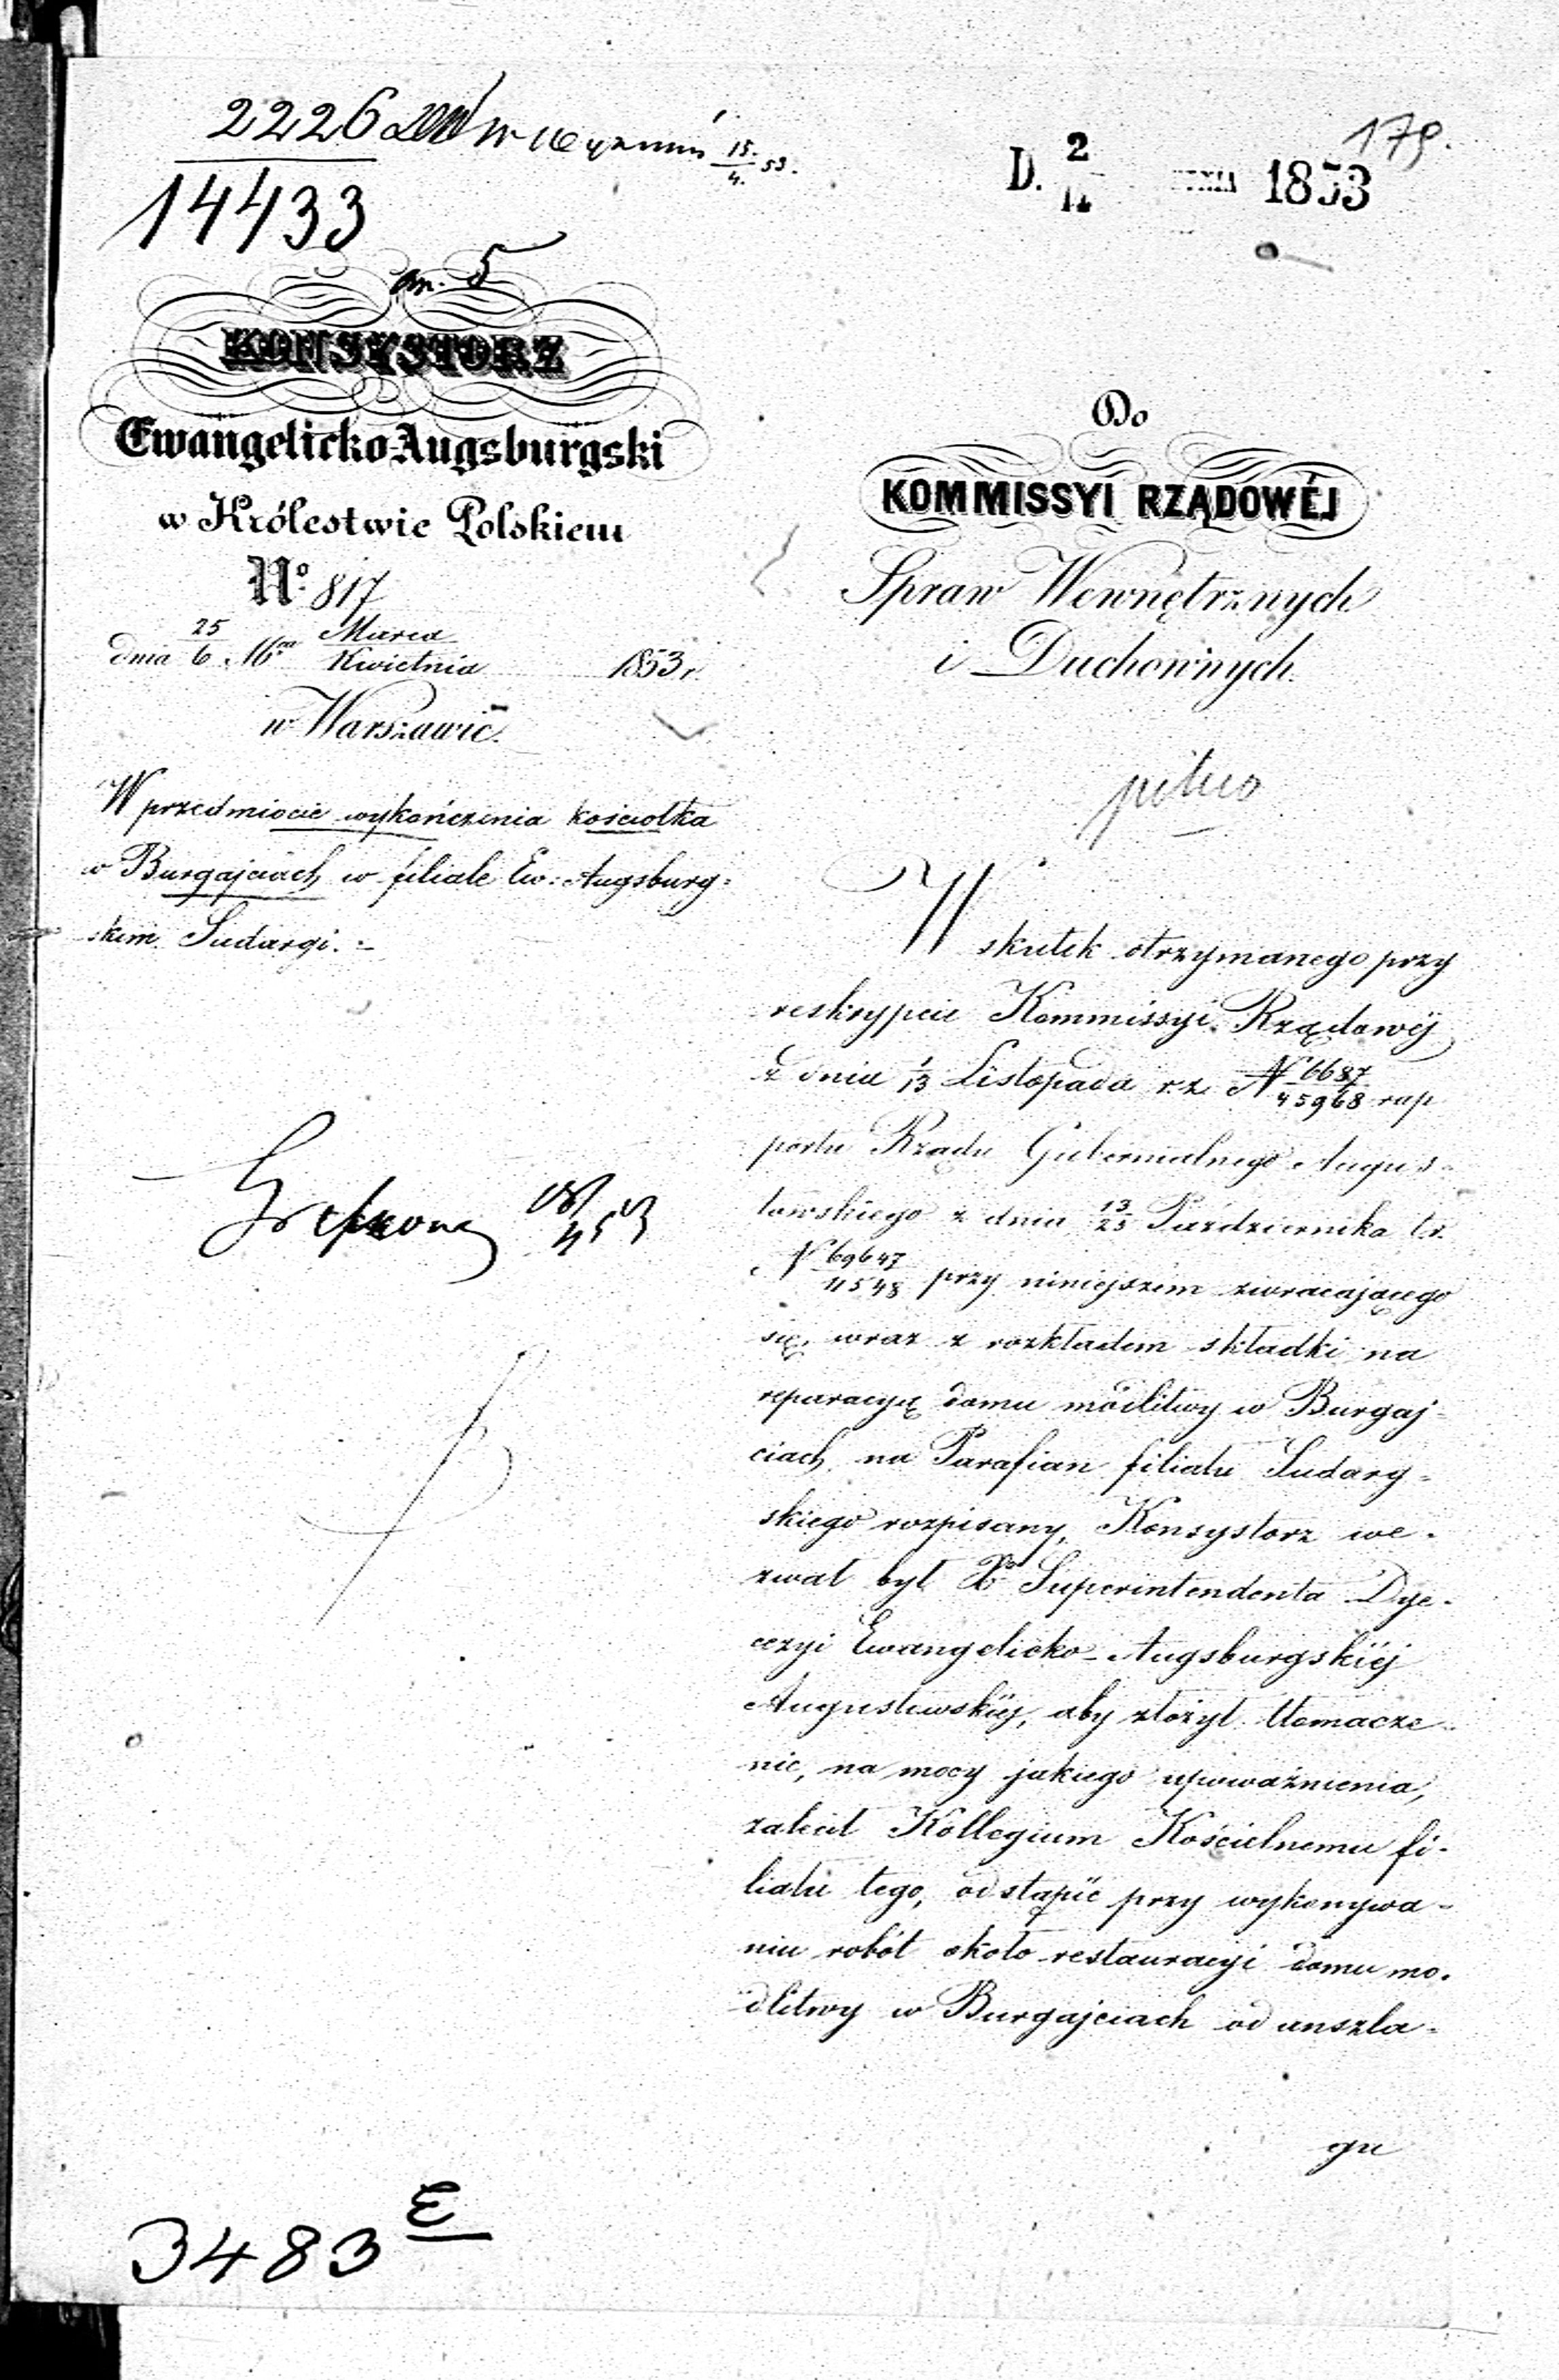 2226
14433
15/4 53.
179.
D. 2/14 1853
an. 5
KONSYSTORZ
Ewangelicko-Augsburgski
w Królestwie Polskiem
No. 817
dnia 25/6 Mca Marca/Kwietnia 1853 r.
w Warszawie
W przedmiocie wykończenia kościołka
w Burgajciach w filiale Ew: Augsburg=
skim Sudargi.=
3483 E
Do
KOMMISSYI RZĄDOWÉJ
Spraw Wewnętrznych
i Duchownych.
W skutek otrzymanego przy
reskrypcie Kommissyi Rządowéj
z dnia 1/13 Listopada r. z. N 6687/45968 rap
portu Rządu Gubernialnego Augus=
towskiego z dnia 13/25 Października t.r.
N 69647/11548 przy niniejszem zwracającego
się, wraz z rozkładem składki na
reparacyę domu modlitwy w Burgaj=
ciach, na Parafian filiału Sudarg=
skiego rozpisany, Konsystorz we=
zwał był Xa Superintendenta Dye=
cezyi Ewangelicko-Augsburgskiéj
Augustowskiéj, aby złożył tłomacze=
nie, na mocy jakiego upoważnienia,
zalecił Kollegium Kościelnemu fi=
liału tego, odstąpić przy wykonywa=
niu robót około restauracyi domu mo=
dlitwy w Burgajciach od anszla=
gu